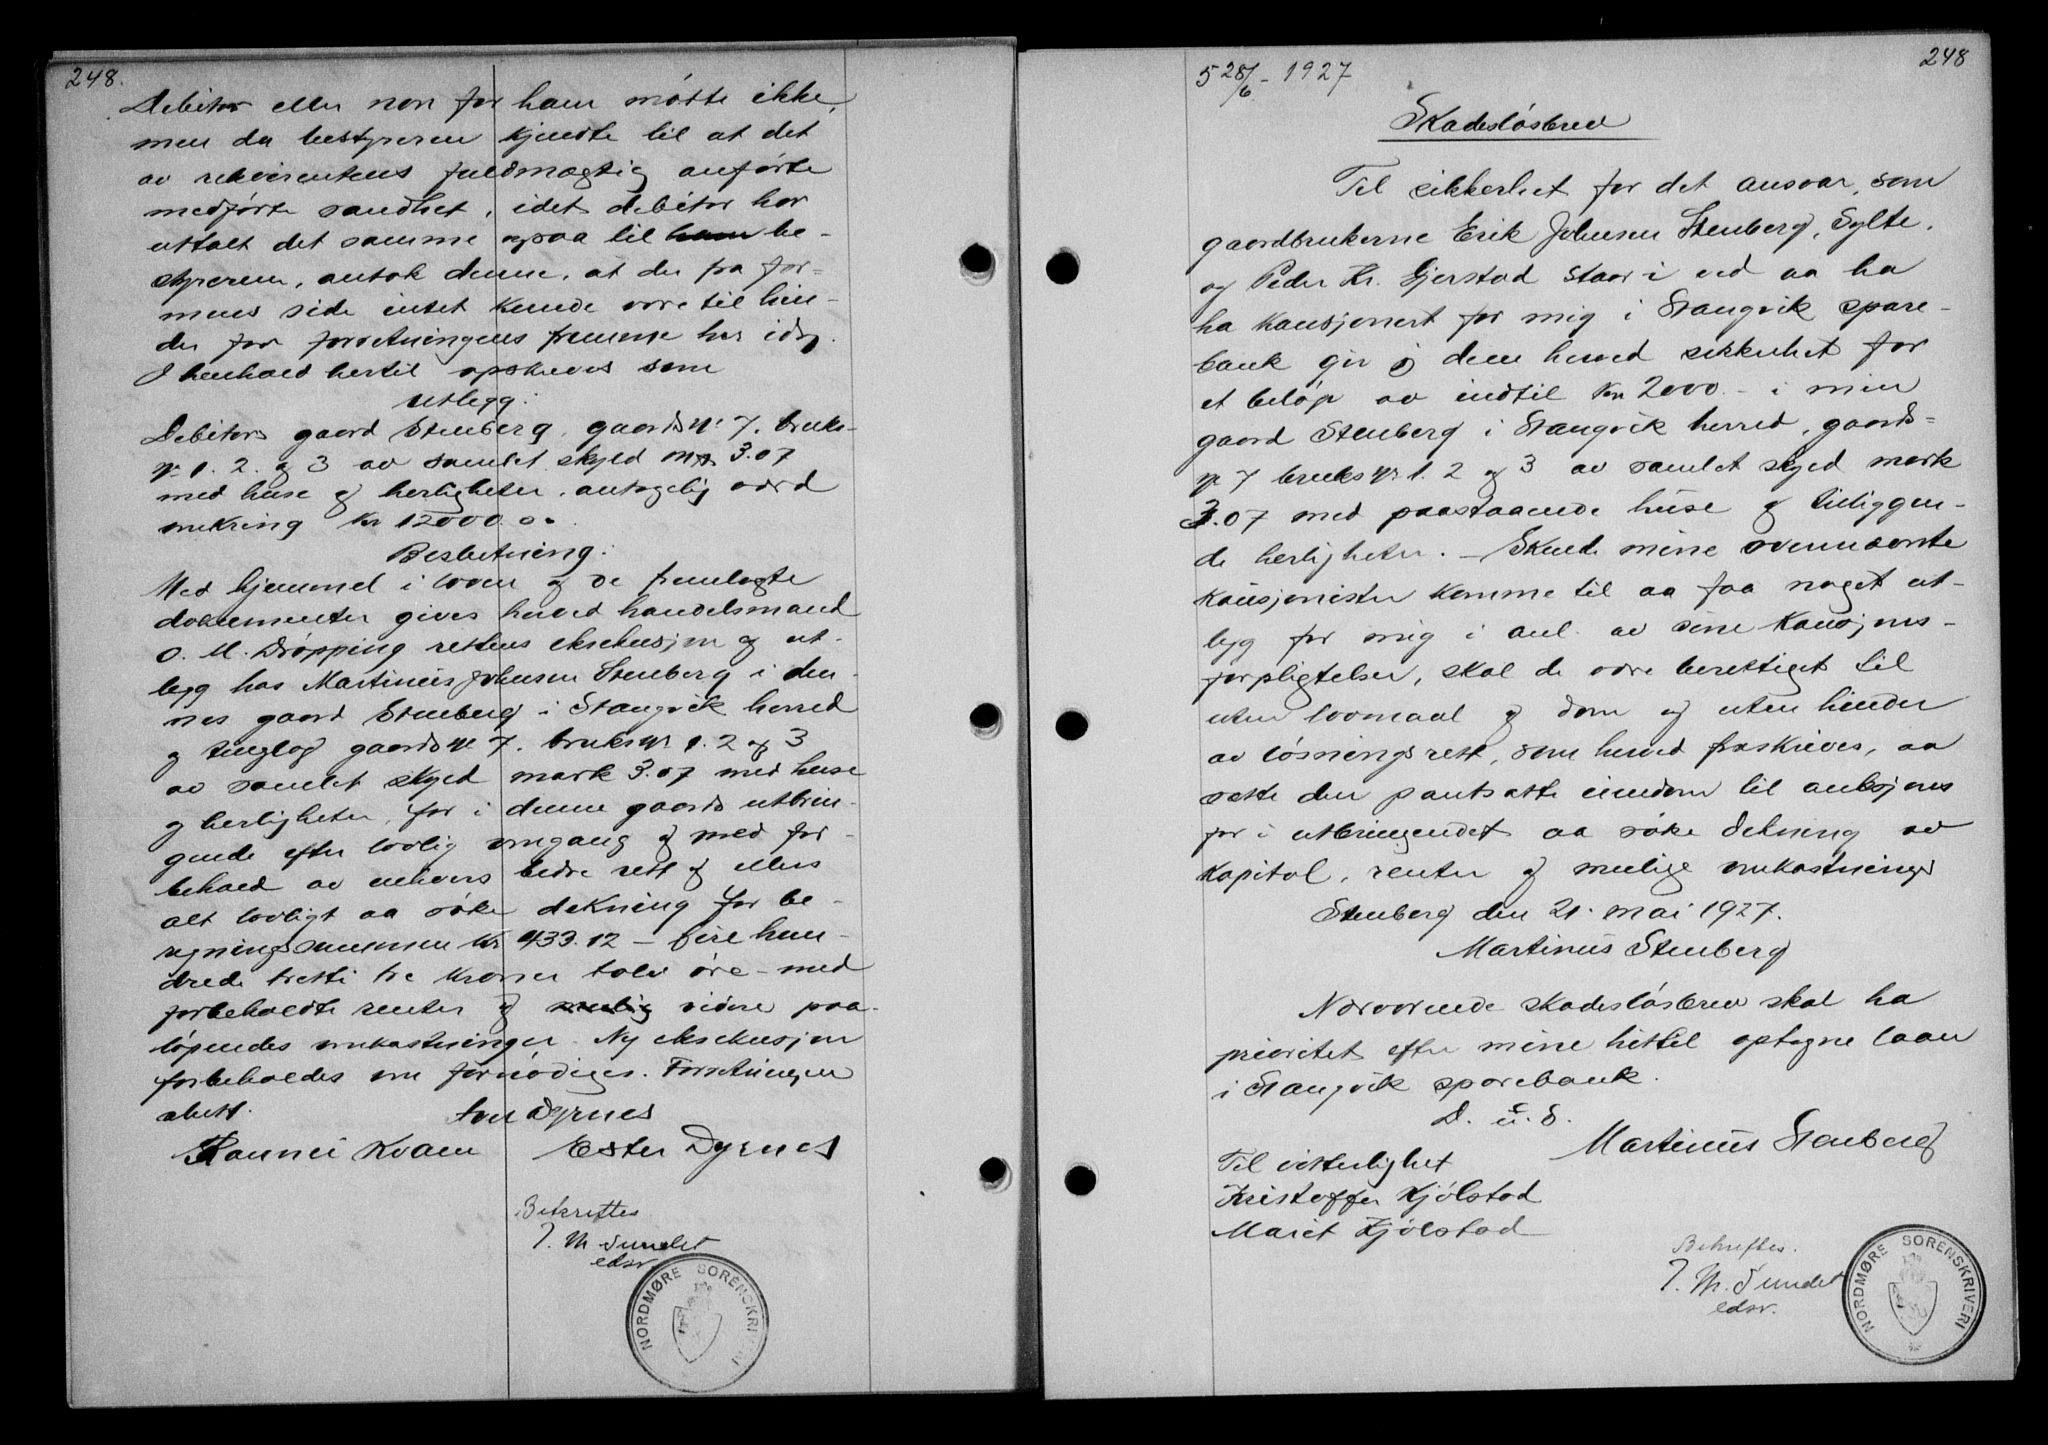 248.
Debitor eller non for ham møtte ikke,
men da bestyreren kjendte til at det
av rekvirentens fuldmægtig anførte
medførte sandhet, idet debitor har
uttalt det samme ogsaa til ham be-
styreren, antok denne, at der fra for-
mens side intet kunde være til hin-
der for forretningens fremme her idag.
I henhold hertil opskreves som
Utlegg:
Debitors gaard Stenberg, gaards nr 7, bruks-
nr 1. 2. og 3 av samlet skyld mrk 3.07
med huse og herligheter, antagelig værd
omkring kr 12000.00.
Beslutning:
Med hjemmel i loven og de fremlagte
dokumenter gives herved handelsmand
O. M. Drøpping rettens eksekusjon og ut-
legg hos Martinus Johnsen Stenberg i den-
nes gaard Stenberg i Stangvik herred
og tinglag gaards nr 7. bruks nr 1. 2 og 3
av samlet skyld mark 3.07 med huse
og herligheter, for i denne gaards utbrin-
gende efter lovlig omgang og med for-
behold av enhvers bedre rett og ellers
alt lovligt aa søke dekning for be-
regningssummen kr 433.12 – fire hun-
drede tretti tre kroner tolv øre – med
forbeholdte renter og muelig videre paa-
løpendes omkostninger. Ny eksekusjon
forbeholdes om fornødiges. Forretningen
slutt.
Iver Dyrnes
Rannei Kvam Ester Dyrnes
Bekreftes
J. M. Sundet
edsv.
NORDMØRE SORENSKRIVERI
248
5 28/6 - 1927
Skadesløsbrev
Til sikkerhet for det ansvar, som
gaardbrukerne Erik Johnsen Stenberg, Sylte,
og Peder Kr. Gjerstad staar i ved aa ha
ha kausjonert for mig i Stangvik spare-
bank gir jeg dem herved sikkerhet for
et beløp av indtil kr 2000.- i min
gaard Stenberg i Stangvik herred, gaards-
nr 7 bruks nr 1. 2 og 3 av samlet skyld mark
3.07 med paastaaende huse og tilliggen-
de herligheter. – Skulde mine ovennævnte
kausjonister komme til aa faa noget ut-
legg for mig i anl. av sine kausjons-
forpligtelser, skal de være berettiget til
uten lovmaal og dom og uten hinder
av løsningsrett, som herved fraskrives, aa
sette den pantsatte eiendom til auksjon
for i utbringendet aa søke dekning av
kapital, renter og mulige omkostninger
Stenberg den 21. mai 1927.
Martinus Stenberg
Nærværende skadesløsbrev skal ha
prioritet efter mine hittil optagne laan
i Stangvik sparebank.
D. u. S.
Martinus Stenberg
Til vitterlighet
Kristoffer Kjølstad
Marit Kjølstad
Bekreftes.
J. M. Sundet
edsv.
NORDMØRE SORENSKRIVERI